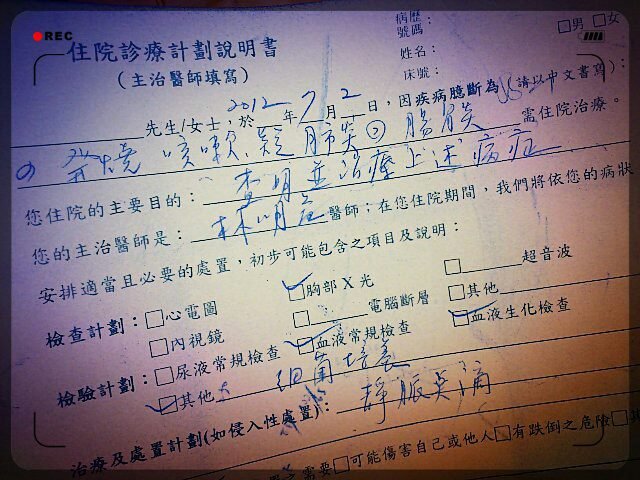 REC
住院診療計劃說明書
(主治醫師填寫)
病歷號碼：
姓名：
床號：
□男 □女
先生/女士，於 2012 年 7 月 2 日，因疾病臆斷為(請以中文書寫)：
發燒 咳嗽、疑 肺炎 ② 腸胃炎 需住院治療。
您住院的主要目的：查明並治療上述病症
您的主治醫師是：林明 醫師；在您住院期間，我們將依您的病狀
安排適當且必要的處置，初步可能包含之項目及說明：
檢查計劃：□心電圖 ☑胸部X光 □ 超音波
□內視鏡 □ 電腦斷層 □其他
檢驗計劃：□尿液常規檢查 ☑血液常規檢查 ☑血液生化檢查
☑其他 細菌培養
治療及處置計劃(如侵入性處置)： 靜脈點滴
需要□可能傷害自己或他人□有跌倒之危險□